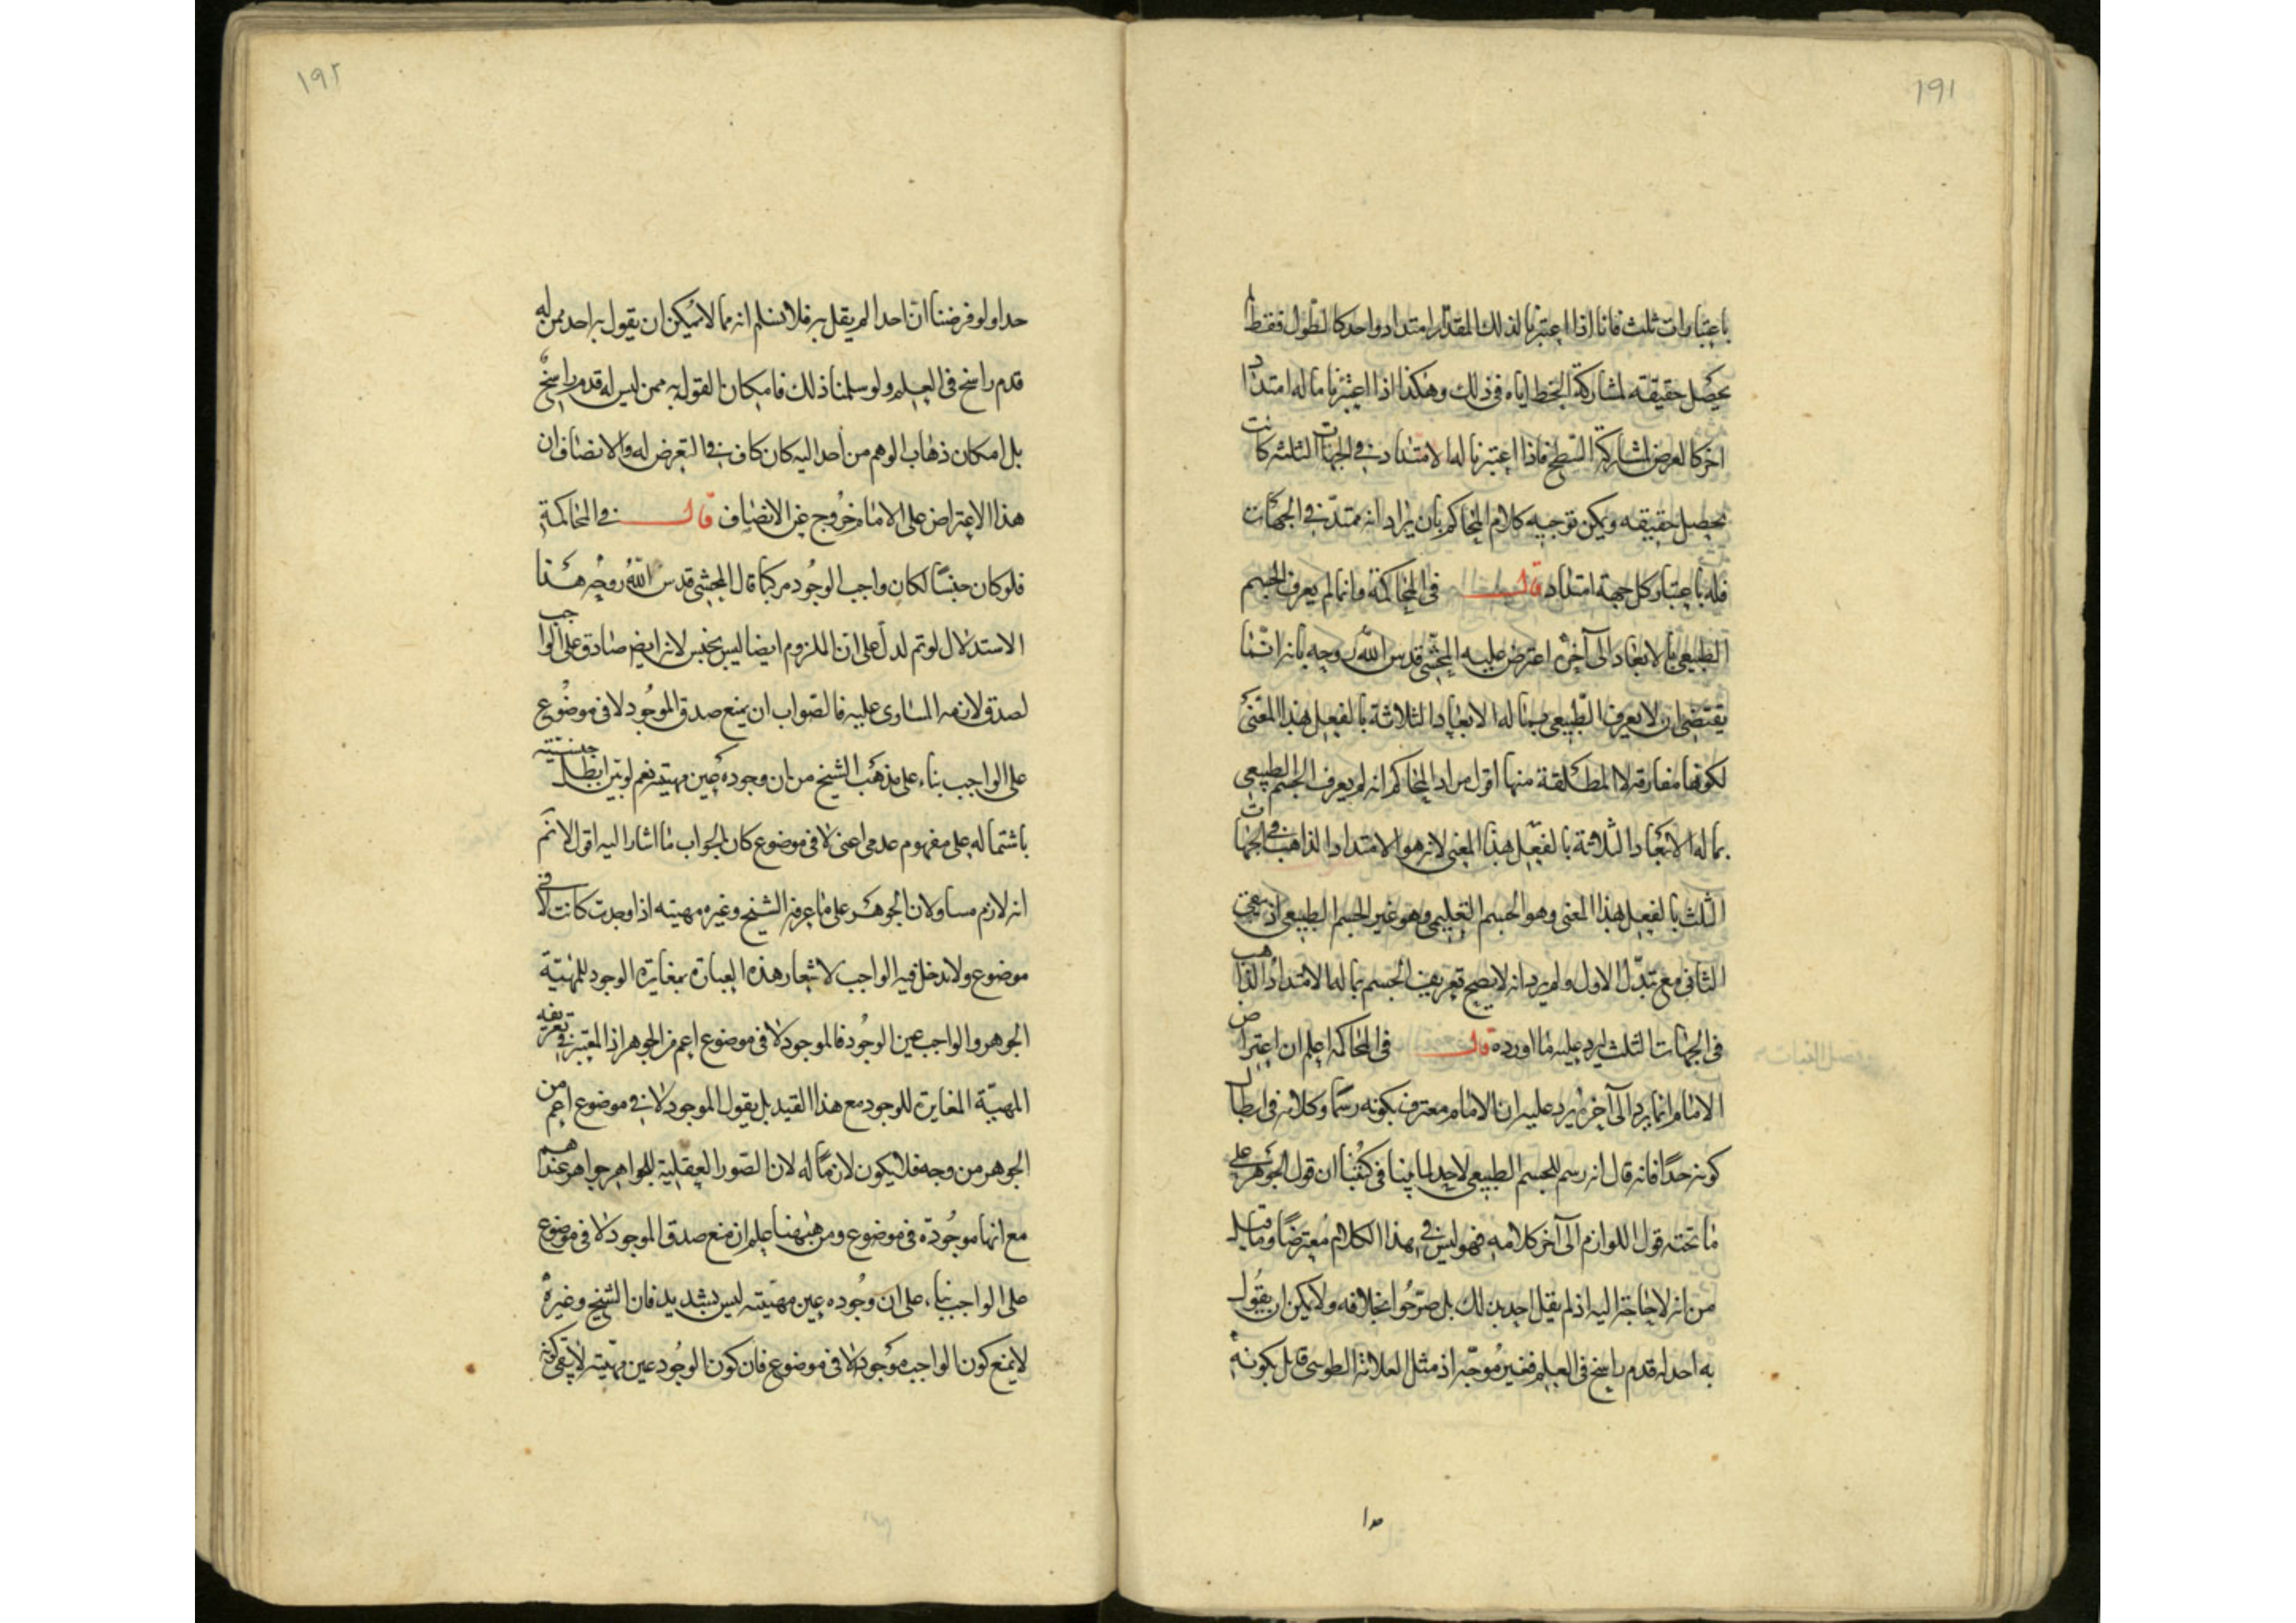 ١٩١
باعتبارات ثلث فانا اذا اعتبرنا لذلك المقدار امتداد واحد كالطول فقط لم
يحصل حقيقته لمشاركة الخط اياه فى ذلك وهكذا اذا اعتبرنا ما له امتدادا
اخر كالعرض لمشاركة السطح فاذا اعتبرنا لها الامتداد فى الجهات الثلثه كانت
تحصل حقيقه ويمكن توجيه كلام المحاكم بان يراد انه ممتد فى الجهات
فله باعتبار كل جهة امتداد قال فى المحاكمة وانما لم يعرف الجسم
الطبيعى بالابعاد الى آخره اعترض عليه المحشى قدس الله روحه بانه انما
يقتضى ان لا يعرف الطبيعى بما له الابعاد الثلاثة بالفعل بهذا المعنى
لكونها مفارقه لا المطلقة منها اقول مراد المحاكم انه لم يعرف الجسم الطبيعى
بما له الابعاد الثلاثة بالفعل بهذا المعنى لانه هو الامتداد الذاهب فى الجهات
الثلث بالفعل بهذا المعنى وهو الجسم التعليمى وهو غير الجسم الطبيعى اذ يبقى
الثانى مع تبدل الاول ولم يرد انه لا يصح تعريف الجسم بما له الامتداد الذاهب
فى الجهات الثلث ليرد عليه ما اورده قال فى المحاكمه اعلم ان اعتراض
الامام انما يرد الى آخره يرد عليه ان الامام معترف بكونه رسما وكلامه فى ابطال
كونه حدا فانه قال انه رسم للجسم الطبيعى لا حد لما بينا فى كتبنا ان قول الجوهر على
ما تحته قول اللوازم الى آخر كلامه فهو ليس فى هذا الكلام معترضا وما قيل
من انه لا حاجة اليه اذ لم يقل احد بذلك بل صرحوا بخلافه ولا يمكن ان يقول
به احد له قدم راسخ فى العلم فغير موجه اذ مثل العلامة الطوسى قائل بكونه
حدا
١٩٢
حدا ولو فرضنا ان احدا لم يقل به فلا نسلم انه مما لا يمكن ان يقول به احد ممن له
قدم راسخ فى العلم ولو سلمنا ذلك فامكان القول به ممن ليس له قدم راسخ
بل امكان ذهاب الوهم من احد اليه كان كاف فى التعرض له والانصاف ان
هذا الاعتراض على الامام خروج عن الانصاف قال فى المحاكمة
فلو كان جنسا لكان واجب الوجود مركبا قال المحشى قدس الله روحه هذا
الاستدلال لو تم لدل على ان الملزوم ايضا ليس بجنس لانه ايضا صادق على الواجب
لصدق لازمه المساوى عليه فالصواب ان يمنع صدق الموجود لا فى موضوع
على الواجب بناء على مذهب الشيخ من ان وجوده عين مهيته نعم لو بين ابطال جنسيته
باشتماله على مفهوم عدمى اعنى لا فى موضوع كان الجواب ما اشار اليه اقول لا نم
انه لازم مساو لان الجوهر على ما عرفه الشيخ وغيره مهيته اذا وجدت كانت لا فى
موضوع ولا يدخل فيه الواجب لاشعار هذه العبارة بمغايرة الوجود للمهية
الجوهر والواجب عين الوجود فالموجود لا فى موضوع اعم من الجوهر اذ المعتبر فى تعريفه
المهية المغايرة للوجود مع هذا القيد بل يقول الموجود لا فى موضوع اعم من
الجوهر من وجه فلا يكون لازما له لان الصور العقلية للجواهر جواهر عندهم
مع انها موجودة فى موضوع ومن ههنا علم ان منع صدق الموجود لا فى موضوع
على الواجب بناء على ان وجوده عين مهيته ليس بشديد فان الشيخ وغيره
لا يمنع كون الواجب موجودا لا فى موضوع فان كون الوجود عين مهيته لا ينفى كونه